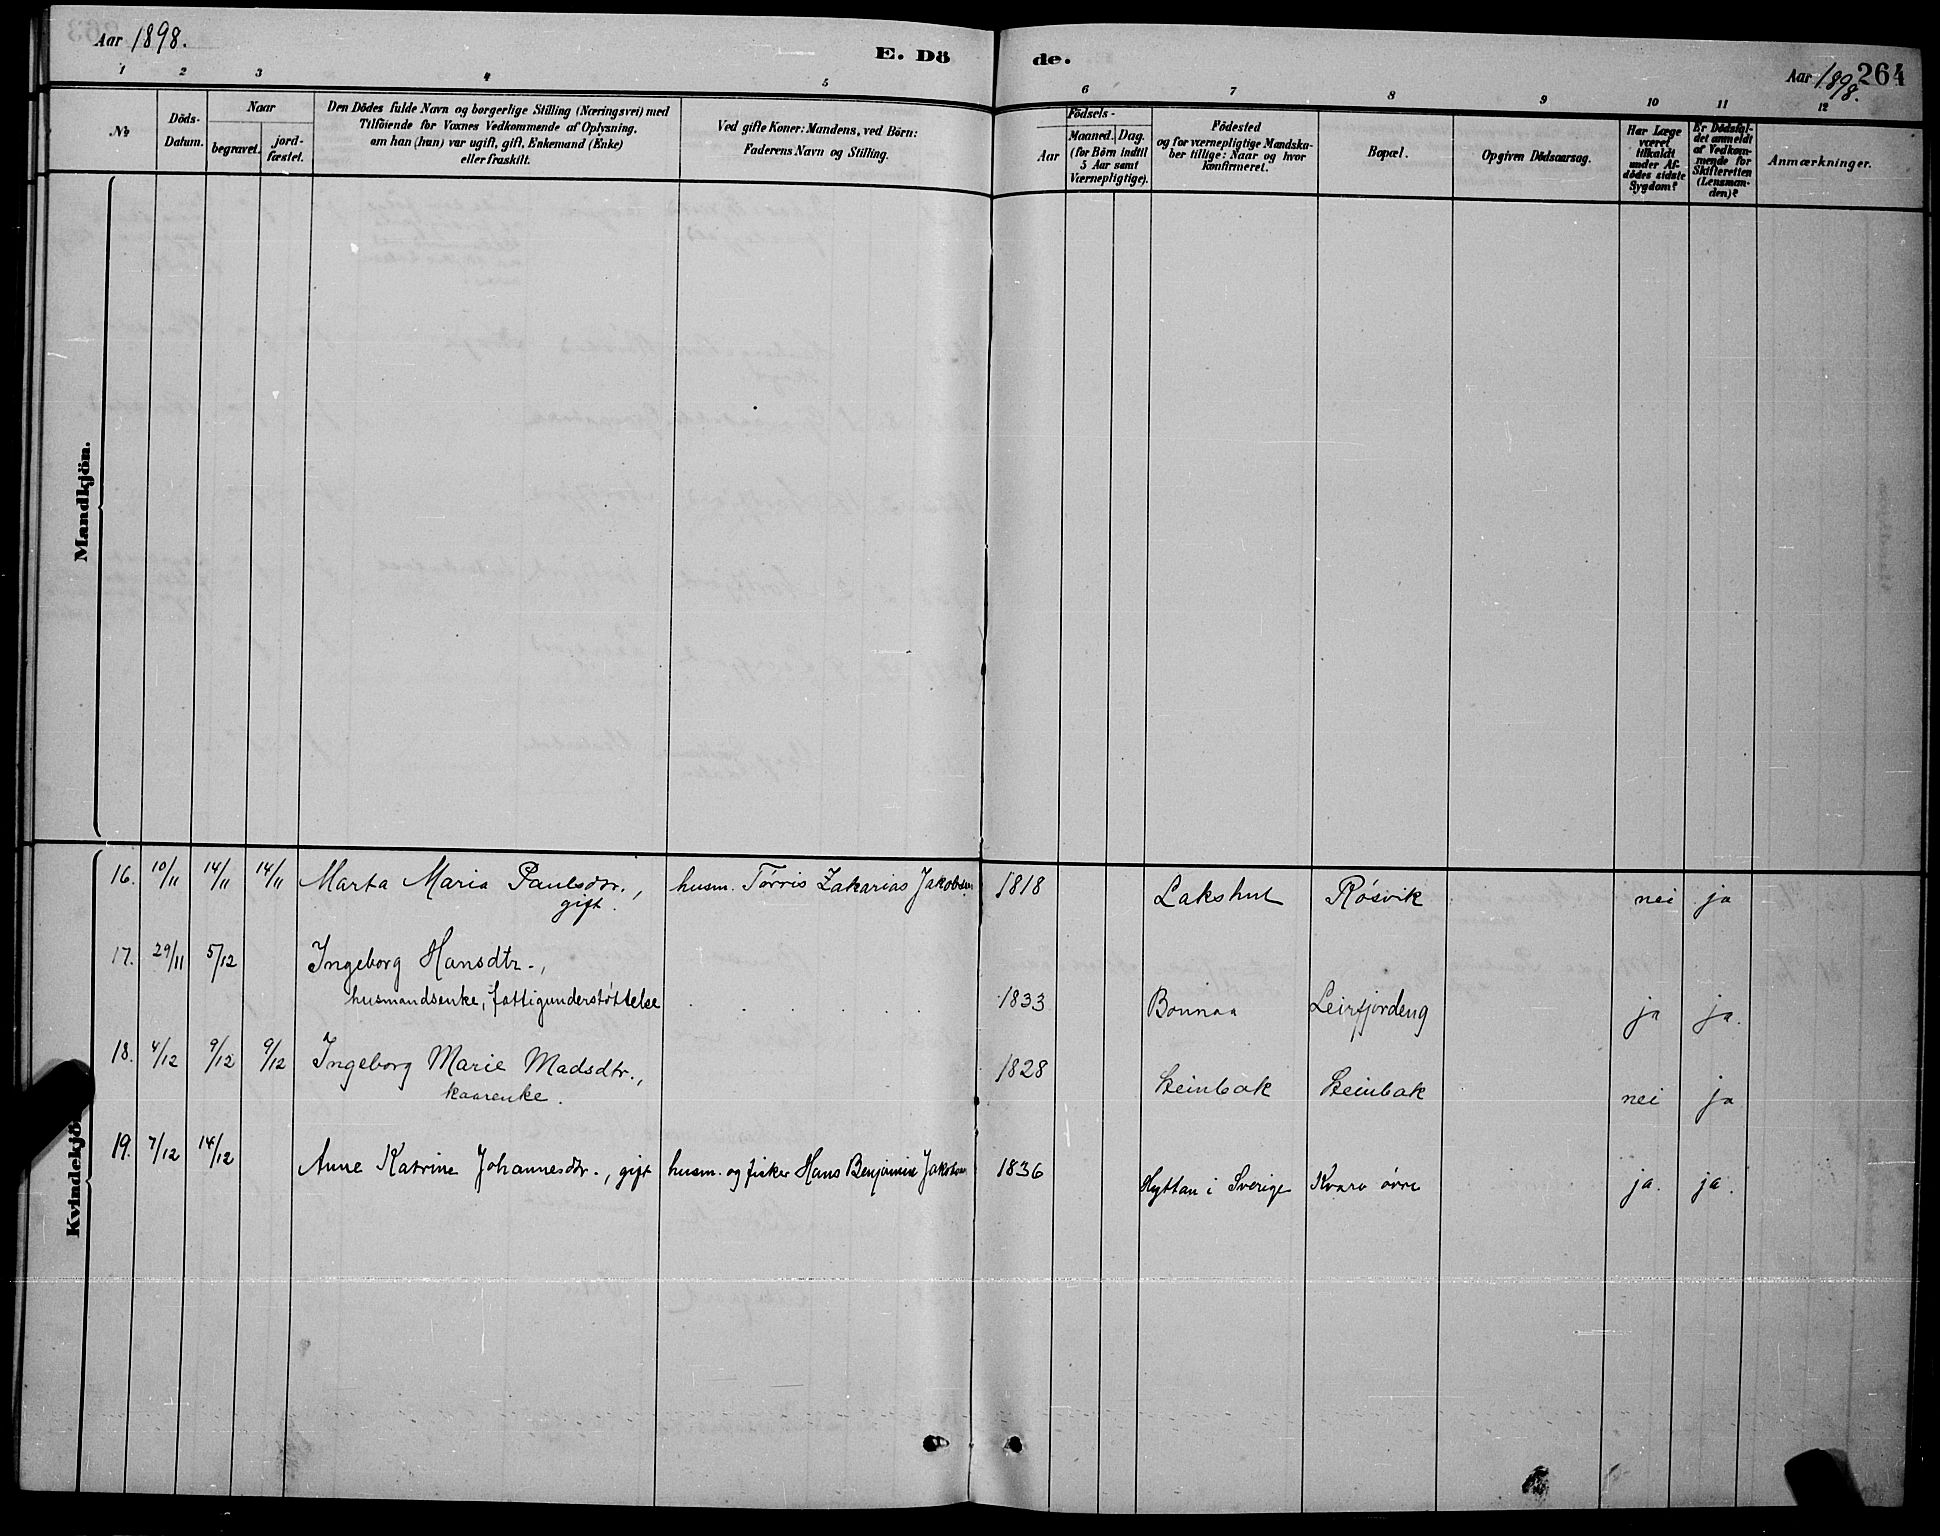 Aar 1898.
E. Dö
de.
Aar 1898. 264
1 2 3 4 5
6 7 8 9 10 11 12
№
Döds-
Datum.
Naar
begravet.
jord-
fæstet.
Den Dödes fulde Navn og borgerlige Stilling (Næringsvei) med
Tilföiende for Voxnes Vedkommende af Oplysning,
om han (hun) var ugift, gift, Enkemand (Enke)
eller fraskilt.
Ved gifte Koner: Mandens, ved Börn:
Faderens Navn og Stilling.
Födsels-
Aar
Maaned. Dag.
(for Börn indtil
5 Aar samt
Værnepligtige).
Födested
og for værnepligtige Mandska-
ber tillige: Naar og hvor
konfirmeret.
Bopæl.
Opgiven Dödsaarsag.
Har Læge
været
tilkaldt
under Af-
dödes sidste
Sygdom?
Er Dödsfal-
det anmeldt
af Vedkom-
mende for
Skifteretten
(Lensman-
den)?
Anmærkninger.
Mandkjön.
Kvindekjö
16. 10/11 14/11 14/11 Marta Maria Paulsdtr., husm. Tørris Zakarias Jakobsen 1818 Lakshut Røsvik nei ja
gift.
17. 29/11 5/12 Ingeborg Hansdtr.,
husmandsenke, fattigunderstøttelse 1833 Bonnaa Leirfjordeng ja ja.
18. 4/12 9/12 9/12 Ingeborg Marie Madsdtr., 1828 Steinbak Steinbak nei ja
kaarenke.
19. 7/12 14/12 Anne Katrine Johannesdtr., gift husm. og fisker Hans Benjamin Jakobsen 1836 Hyttan i Sverige Kvarv øvre ja. ja.